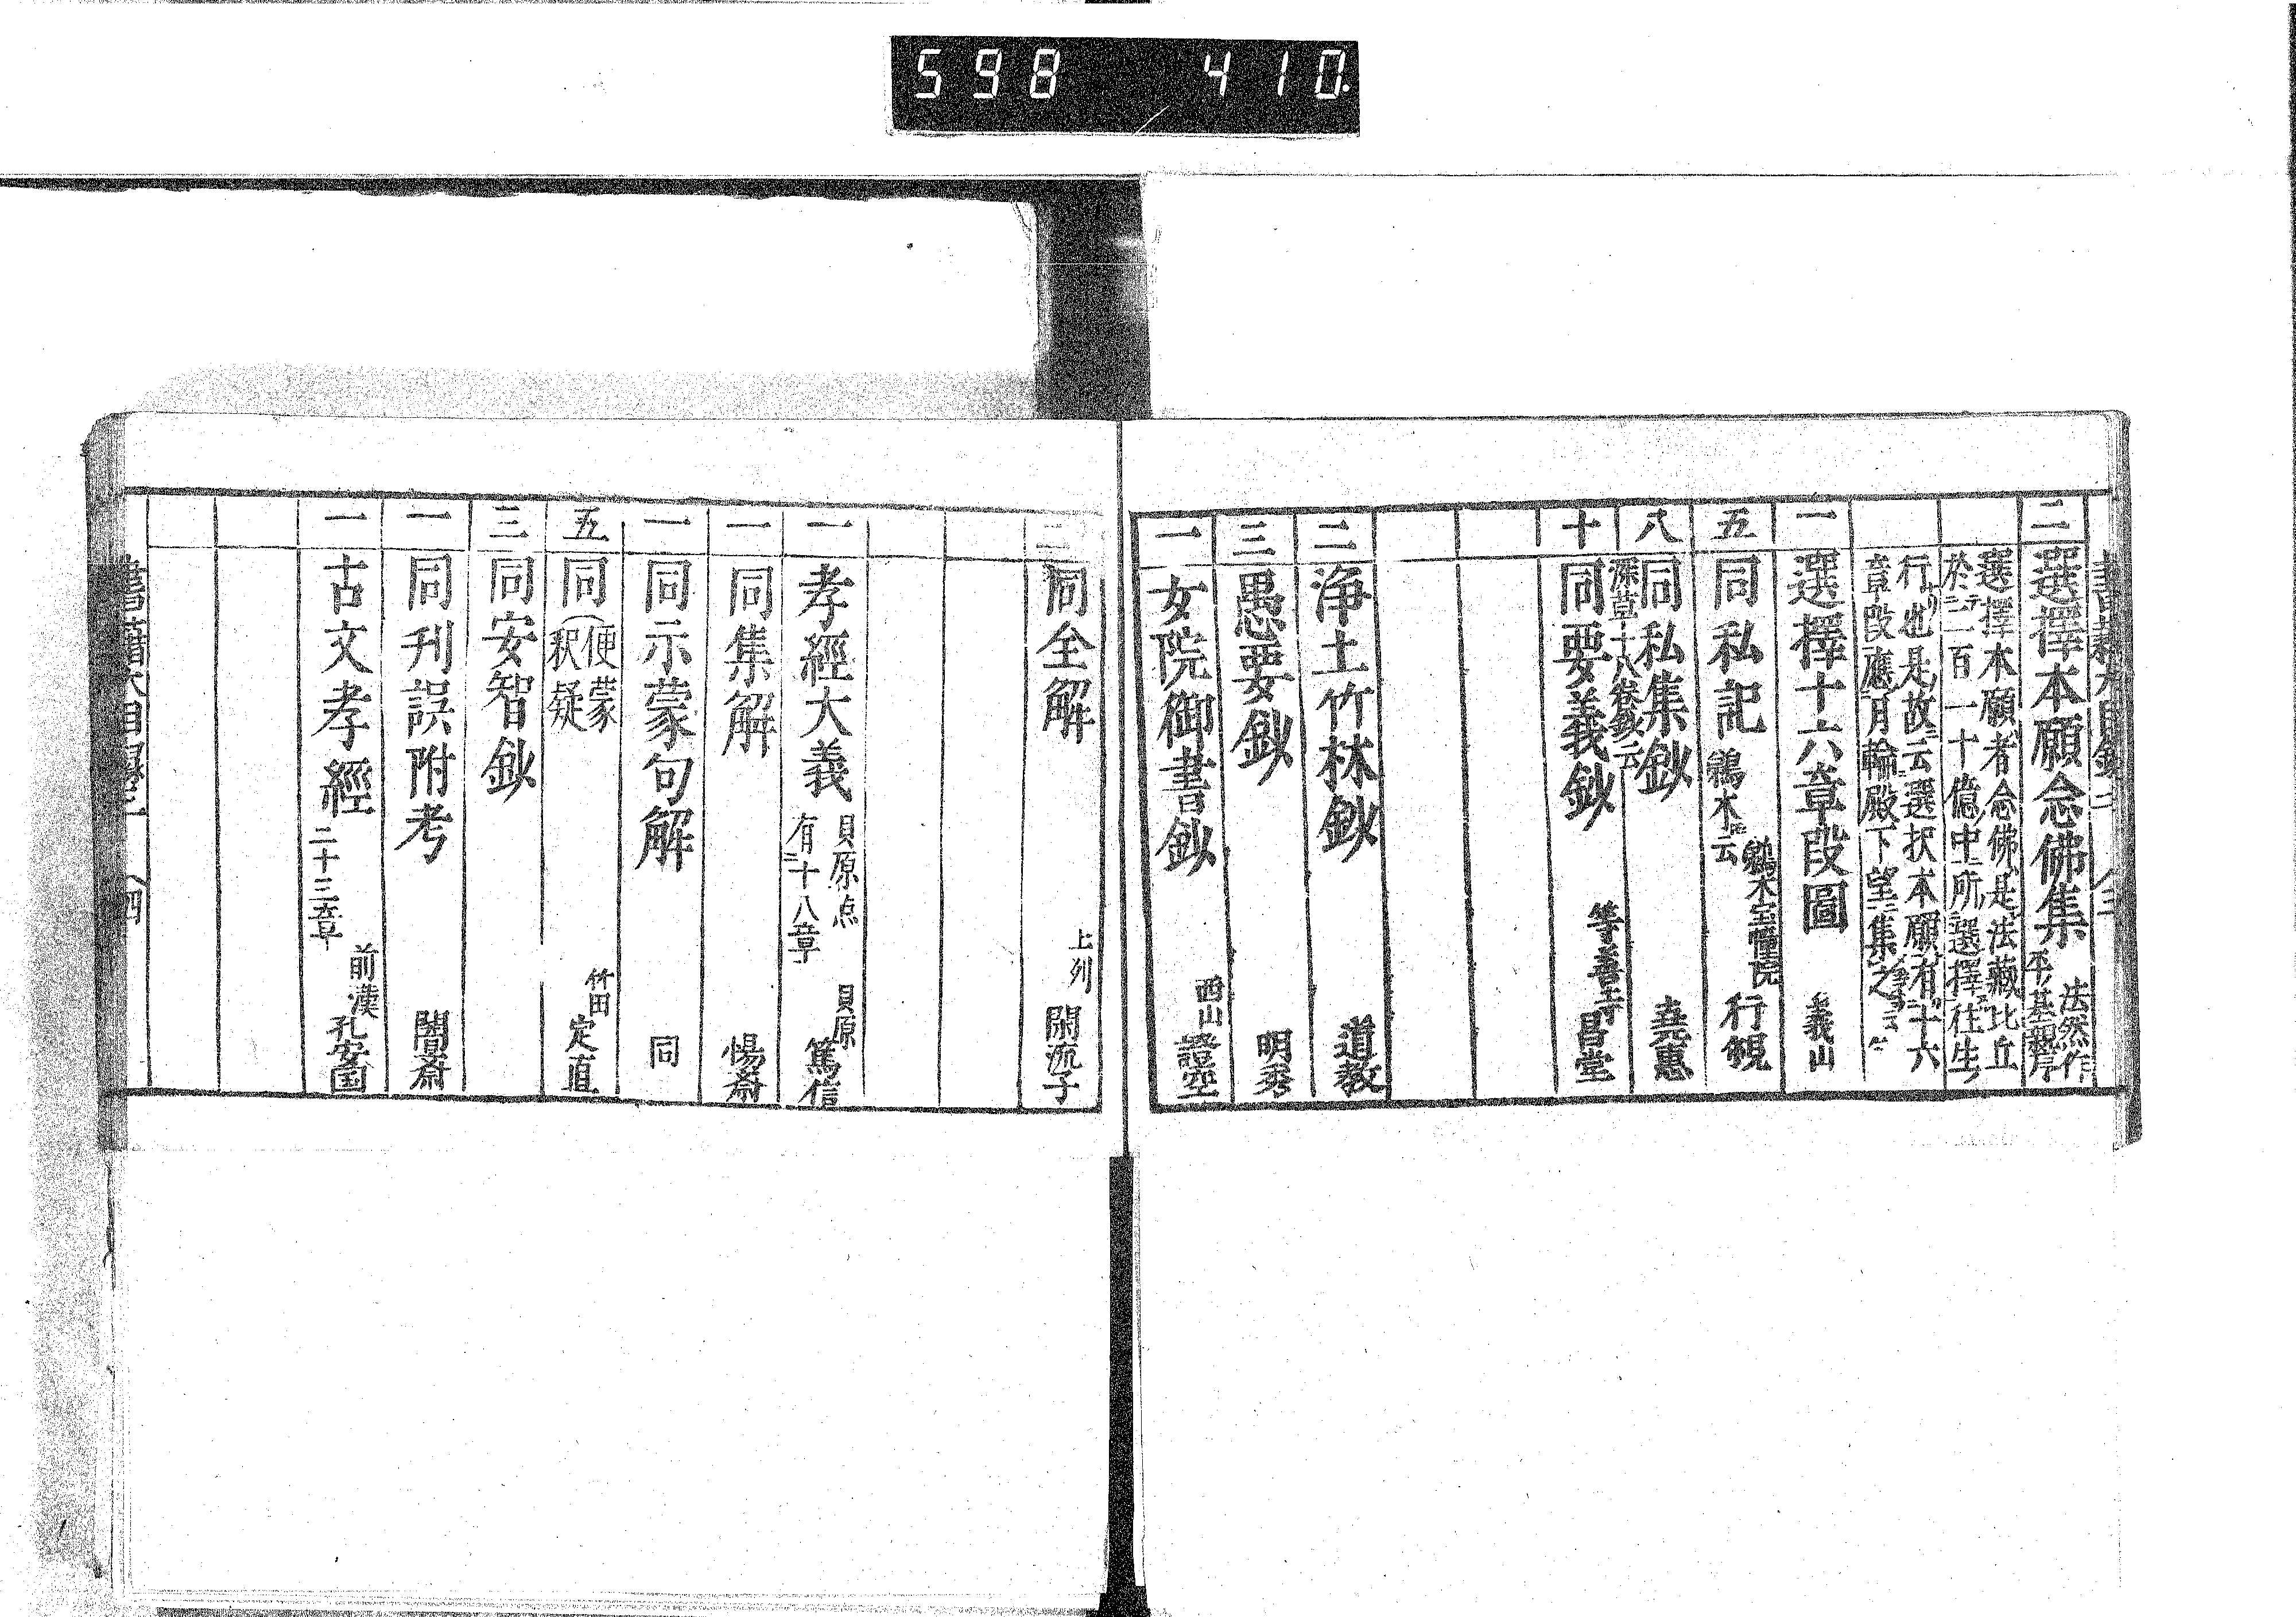 598 410
二 選擇本願念佛集 法然作 平基親序
選擇本願者念佛是法藏比丘
於二百一十億中所選擇往生
行也是故云選択本願有十六
章段應月輪殿下望集之
一 選擇十六章段圖 義山
五 同私記 鵜木云 鵜木宝幢院 行観
八 同私集鈔 堯惠
深草十八卷鈔云
十 同要義鈔 等善寺 昌堂
二 淨土竹林鈔 道教
三 愚要鈔 明秀
一 女院御書鈔 西山 證空
二 同全解 上列 閑流子
一 孝經大義 貝原点 有十八章 貝原 篤信
一 同集解 惕齋
一 同示蒙句解 同
五 同(便蒙 釈疑 竹田 定直
三 同安智鈔
一 同刊誤附考 闇齋
一 古文孝經 二十三章 前漢 孔安国